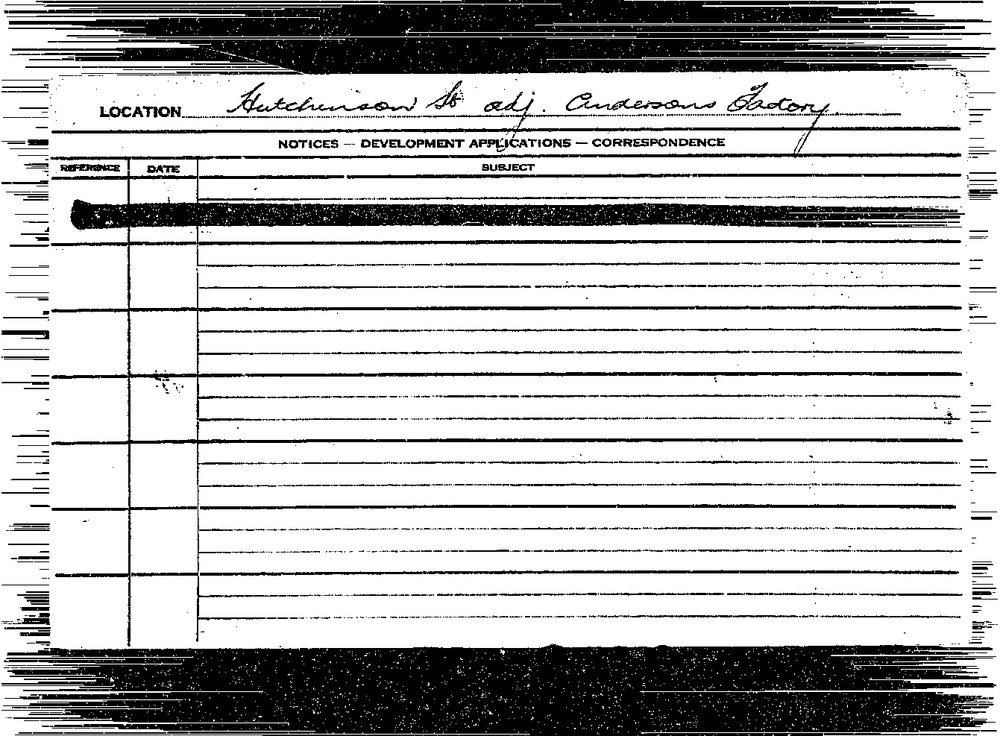 LOCATION Hutchinson St adj. Andersons Factory.
NOTICES — DEVELOPMENT APPLICATIONS — CORRESPONDENCE
REFERENCE DATE SUBJECT